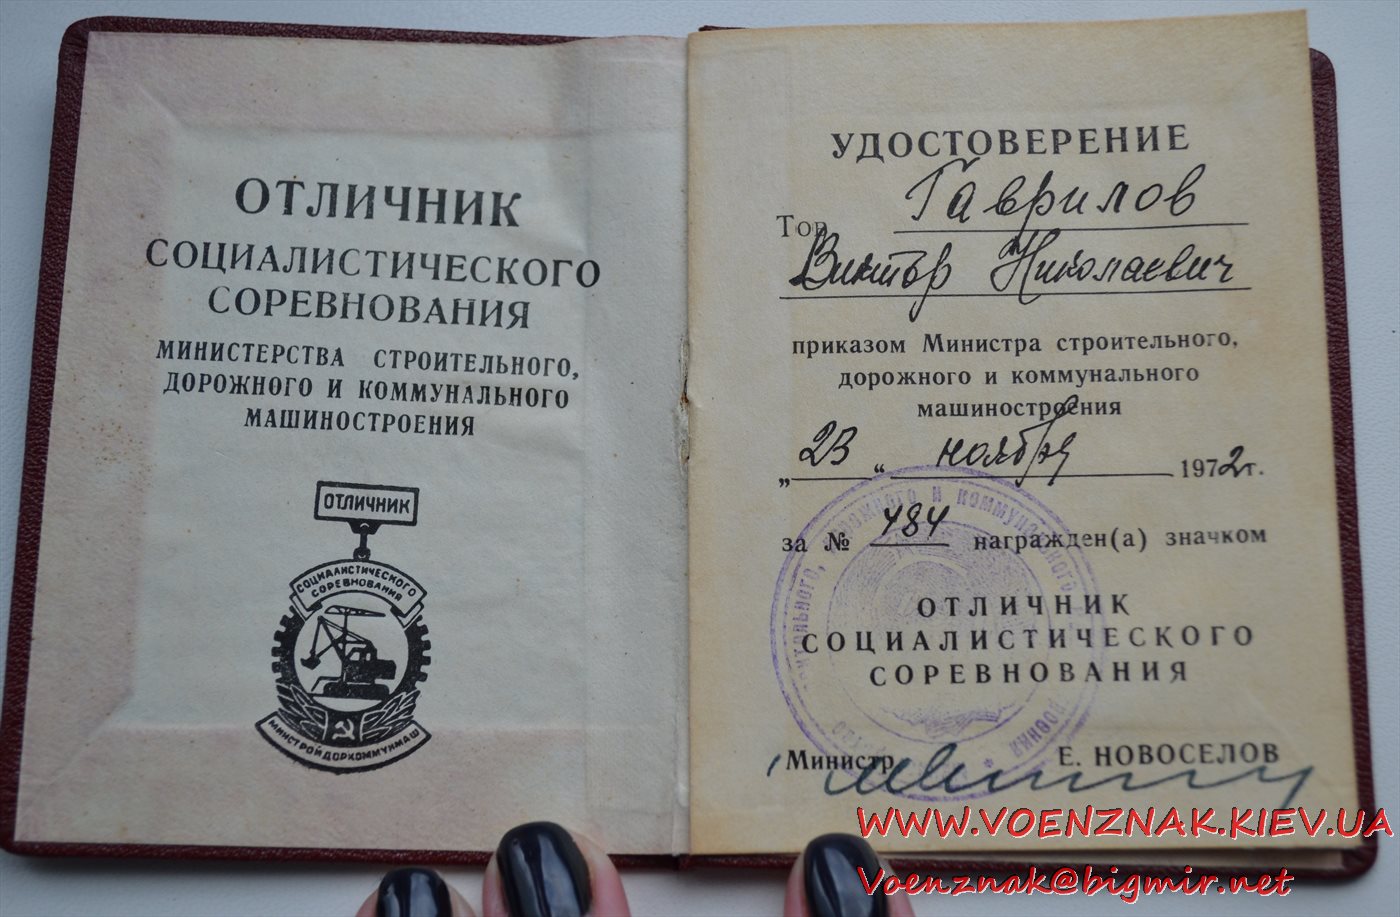 ОТЛИЧНИК
СОЦИАЛИСТИЧЕСКОГО
СОРЕВНОВАНИЯ
МИНИСТЕРСТВА СТРОИТЕЛЬНОГО,
ДОРОЖНОГО И КОММУНАЛЬНОГО
МАШИНОСТРОЕНИЯ
ОТЛИЧНИК
СОЦИАЛИСТИЧЕСКОГО
СОРЕВНОВАНИЯ
МИНСТРОЙДОРКОММУНМАШ
УДОСТОВЕРЕНИЕ
Тов. Гаврилов
Виктор Николаевич
приказом Министра строительного,
дорожного и коммунального
машиностроения
„23“ ноября 1972г.
за № 484 награжден(а) значком
ОТЛИЧНИК
СОЦИАЛИСТИЧЕСКОГО
СОРЕВНОВАНИЯ
Министр Е. НОВОСЕЛОВ
WWW.VOENZNAK.KIEV.UA
Voenznak@bigmir.net